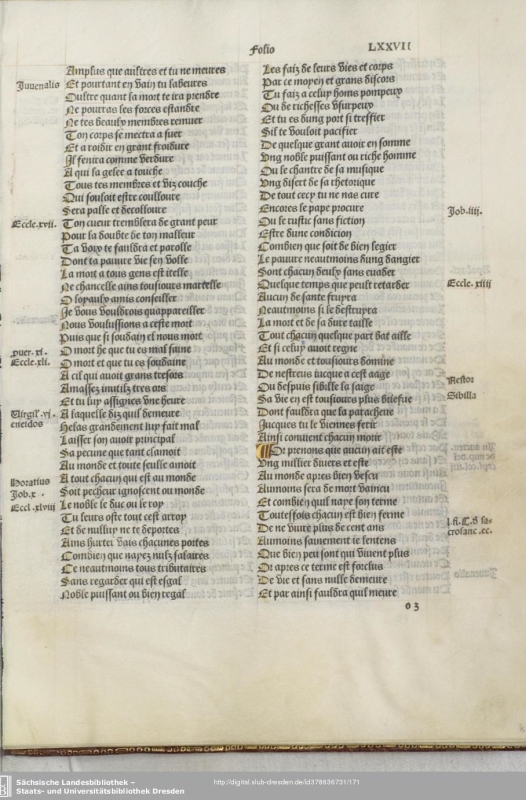 Folio
LXXVII
Amplus que aultres et tu ne meures
Juuenalis
Et pourtant en vain tu labeures
Oultre quant la mort te ira prendre
Ne pourras les forces estandre
Ne tes beaulx membres remuer
Ton corps se mectra a suer
Et a roidir en grant froidure
Il sentira comme verdure
A qui la gelee a touche
Tous tes membres et viz couche
Qui souloit estre coulloure
Sera palle et decolloure
Eccle.xvii.
Ton cueur tremblera de grant peur
Pour la doubte de ton malleur
Ta voix te fauldra et parolle
Dont ta pauure vie sen volle
La mort a tous gens est itelle
Ne chancelle ains tousiours martelle
O loyaulx amis conseiller
Je vous vouldrois quappareiller
Nous voulussions a ceste mort
Puis que si soudain et nous mort
prouer.xi.
O mort he que tu es mal saine
Eccle.xli.
O mort et que tu es soudaine
A cil qui auoit grans tresors
Amassez inutilz tres ors
Et tu luy assignes vne heure
Virgil'.vi.
A laquelle diz quil demeure
eneidos
Helas grandement luy fait mal
Laisser son auoir principal
Sa pecune que tant clamoit
Au monde et toute seulle amoit
Horatius
A tout chacun qui est au monde
Job.x.
Soit pecheur ignoscent ou monde
Eccl.xlviij
Le noble le duc ou le roy
Tu leurs oste tout cest arroy
Et de nulluy ne te deportes
Ains hurter vais chacunes portes
Combien que nayez nulz salaires
Ce neautmoins tous tributaires
Sans regarder qui est esgal
Noble puissant ou bien regal
Les faiz de leurs vies et corps
Par ce moyen et grans discors
Tu faiz a celuy homs pompeux
Ou de richesses vsurpeux
Et tu es dung port si treffier
Sil te vouloit pacifier
De quelque grant auoir en somme
Vng noble puissant ou riche homme
Ou le chantre de sa musique
Vng disert de sa rhetorique
De tout cecy tu ne nas cure
Encores le pape procure
Job.iiij.
Ou le rustic sans fiction
Estre dune condicion
Combien que soit de bien legier
Le pauure neautmoins dung dangier
Sont chacun deulx sans euader
Quelque temps que peult retarder
Eccle.xiiij
Aucun de sante fruyra
Neautmoins si le destruyra
La mort et de sa dure taille
Tout chacun quelque part bat aille
Et si celuy auoit regne
Au monde et tousiours domine
De nestreus iucque a cest aage
Nestor
Ou despuis sibille la saige
Sibilla
Sa vie en est tousiours plus briefue
Dont fauldra que la paracheue
Jucques tu le viennes ferir
Ainsi conuient chacun morir
Or prenons que aucun ait este
Vng millier diuers et este
Au monde apres bien vescu
Aumoins sera de mort vaincu
Et combien quil naye son terme
Toutesfois chacun est bien ferme
De ne viure plus de cent ans
Aumoins sainement ie lentens
Que bien peu sont qui viuent plus
Or apres ce terme est forclus
De vie et sans nulle demeure
Et par ainsi fauldra quil meure
o 3
Sächsische Landesbibliothek –
Staats- und Universitätsbibliothek Dresden
http://digital.slub-dresden.de/id378636731/171